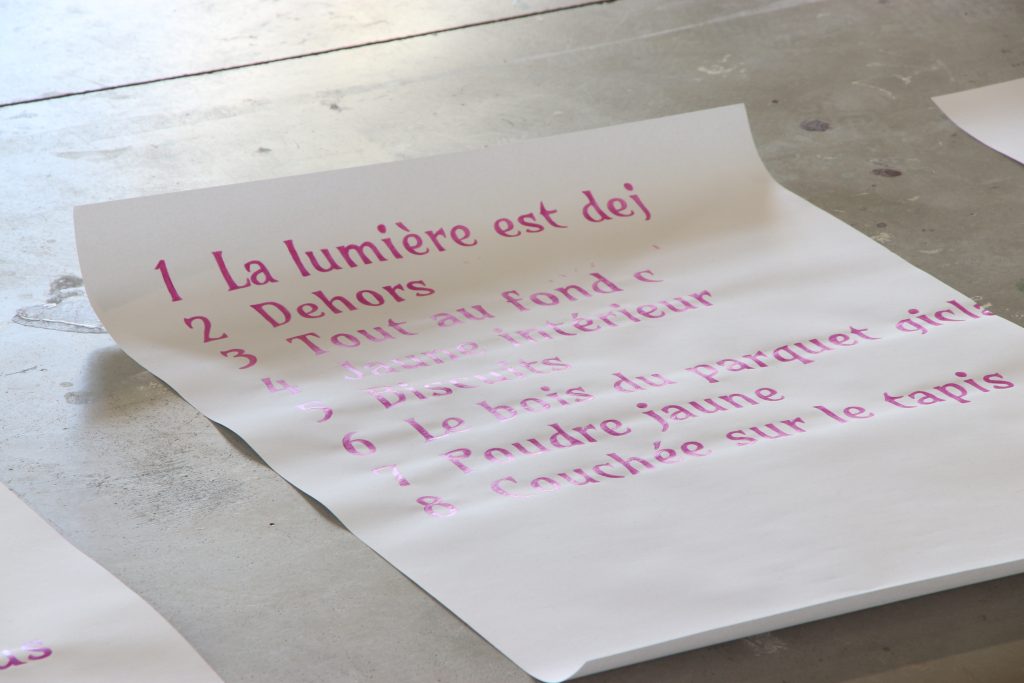 1 La lumière est dej
2 Dehors
3 Tout au fond c
4 Jaune intérieur
5 Biscuits
6 Le bois du parquet gicla
7 Poudre jaune
8 Couchée sur le tapis
us